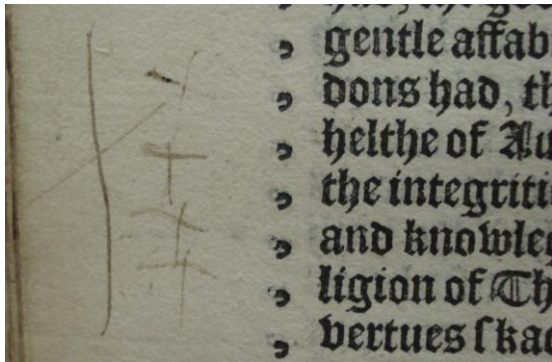 ❟ gentle affab
❟ dons had, th
❟ helthe of Au
❟ the integriti
❟ and knowleg
❟ ligion of Th
❟ vertues skar